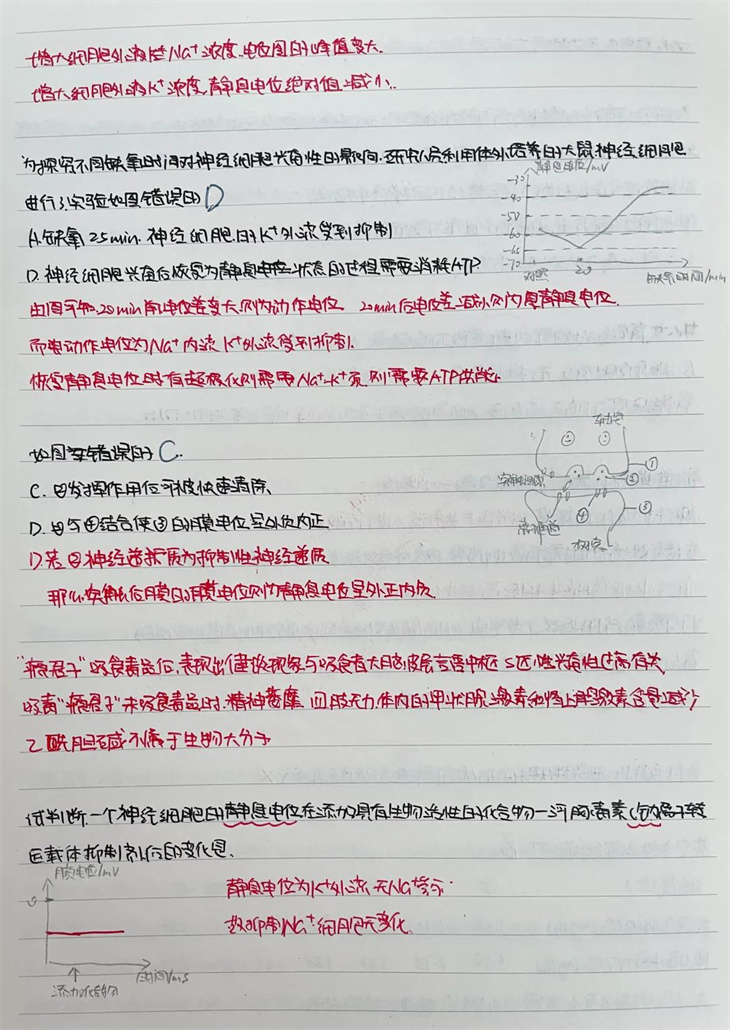 增大细胞外液Na⁺浓度,电位图的峰值变大.
增大细胞外液K⁺浓度,静息电位绝对值减小.
为探究不同缺氧时间对神经细胞兴奋性的影响.研究人员利用体外培养的大鼠神经细胞
进行了实验如图错误的 D
静息电位/mV
-30
-40
-50
-60
-65
-70
对照
20
缺氧时间/min
A.缺氧25min.神经细胞的K⁺外流受到抑制
D.神经细胞兴奋后恢复为静息电位状态的过程需要消耗ATP.
由图可知.20min前电位差变大则为动作电位. 20min后电位差减小则为静息电位.
而电动作电位为Na⁺内流 K⁺外流受到抑制.
恢复静息电位时有超极化则需要Na⁺-K⁺泵,则需要ATP供能.
如图示错误的 C.
①
②
③
④
C. ②发挥作用后可被快速清除.
D. ②与④结合使③的膜电位呈外负内正
D若②神经递质为抑制性神经递质
那么突触后膜的膜电位则为静息电位呈外正内负.
"瘾君子"吸食毒品后,表现出健谈现象与吸食者大脑皮层言语中枢S区性兴奋性过高有关
吸毒"瘾君子"未吸食毒品时.精神萎靡.四肢无力.体内的甲状腺激素和肾上腺激素含量减少
乙酰胆碱不属于生物大分子
试判断.一个神经细胞的静息电位在添加具有生物活性的化合物—河豚毒素(钠离子转
运载体抑制剂)后的变化是.
膜电位/mV
0
时间/ms
添加化合物
静息电位为K⁺外流.无Na⁺
故抑制Na⁺细胞无变化.